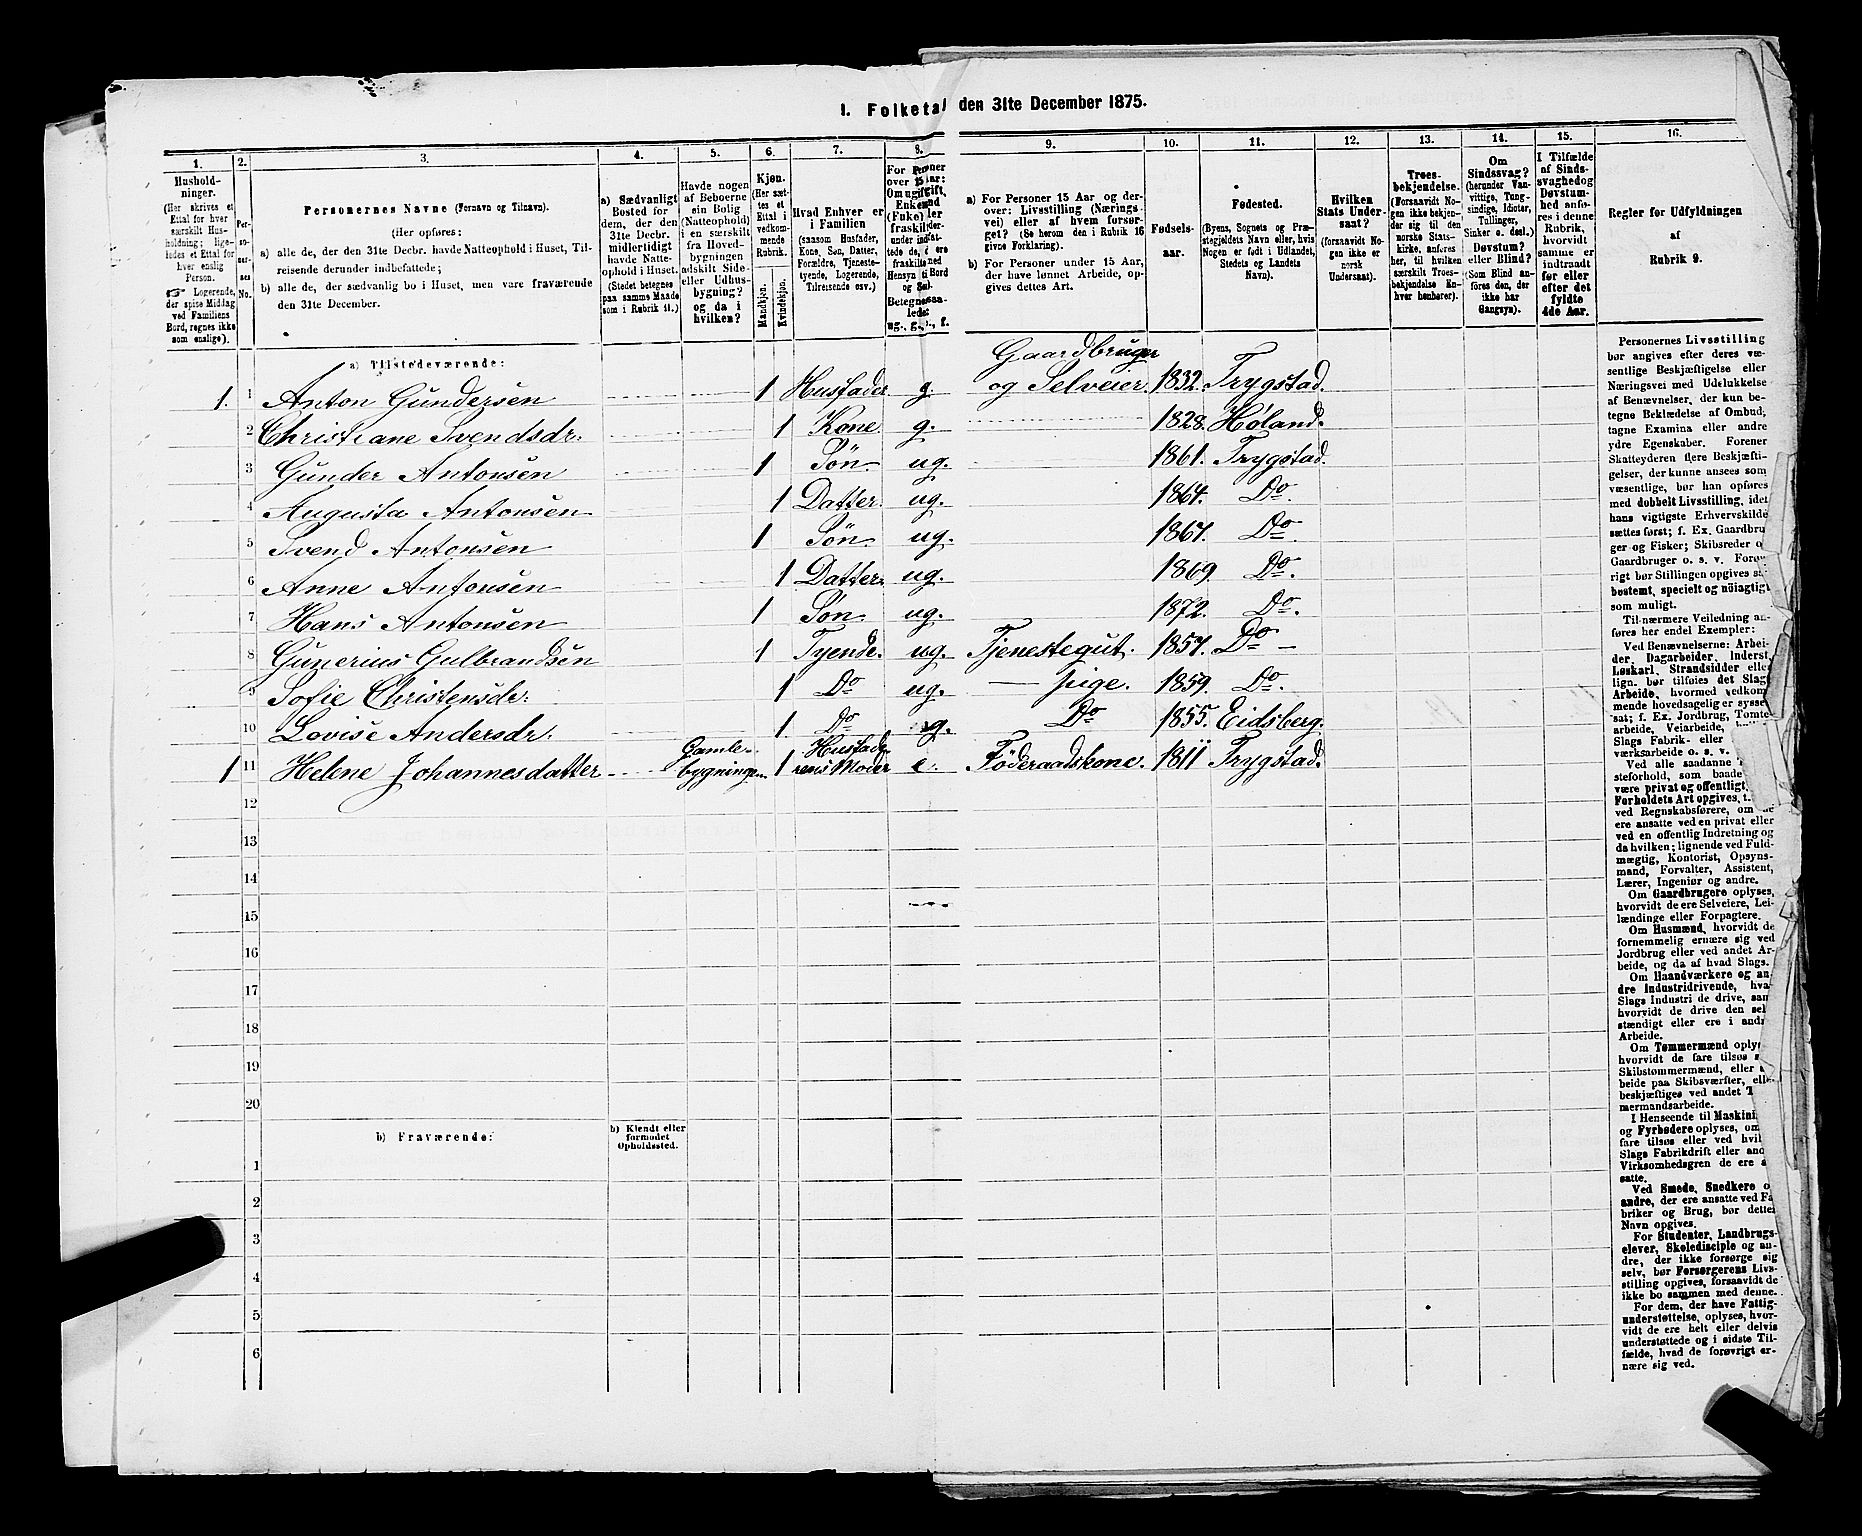 1. Folketal den 31te December 1875.
1. 2. 3. 4. 5. 6. 7. 8. 9. 10. 11. 12. 13. 14. 15. 16.
Hushold-
ninger.
(Her skrives et
Ettal for hver
særskilt Hus-
holdning; lige-
ledes et Ettal for
hver enslig
Person.
☞ Logerende,
der spise Middag
ved Familiens
Bord, regnes ikke
som enslige).
Per-
so-
ner-
nes
No.
Personernes Navne (Fornavn og Tilnavn).
(Her opføres:
a) alle de, der den 31te Decbr. havde Natteophold i Huset, Til-
reisende derunder indbefattede;
b) alle de, der sædvanlig bo i Huset, men vare fraværende
den 31te December.
a) Sædvanligt
Bosted for
dem, der den
31te Decbr.
midlertidigt
havde Natte-
ophold i Huset.
(Stedet betegnes
paa samme Maade
som i Rubrik 11.)
Havde nogen
af Beboerne
sin Bolig
(Natteophold)
i en særskilt
fra Hoved-
bygningen
adskilt Side-
eller Udhus-
bygning?
og da i
hvilken?
Kjøn.
(Her sæt-
tes et
Ettal i
vedkom-
mende
Rubrik.
Mandkjøn.
Kvindekjøn.
Hvad Enhver er
i Familien
(saasom Husfader,
Kone, Søn, Datter,
Forældre, Tjeneste-
tyende, Logerende,
Tilreisende osv.)
a) For Personer 15 Aar og der-
over: Livsstilling (Nærings-
vei) eller af hvem forsør-
get? (Se herom den i Rubrik 16
givne Forklaring).
b) For Personer under 15 Aar,
der have lønnet Arbeide, op-
gives dettes Art.
Fødsels-
aar.
Fødested.
(Byens, Sognets og Præ-
stegjeldets Navn eller, hvis
Nogen er født i Udlandet,
Stedets og Landets
Navn).
Hvilken
Stats Under-
saat?
(forsaavidt No-
gen ikke er
norsk
Undersaat).
Troes-
bekjendelse.
(Forsaavidt No-
gen ikke bekjen-
der sig til den
norske Stats-
kirke, anføres
her, til hvilken
særskilt Troes-
bekjendelse En-
hver henhører).
Om
Sindssvag?
(herunder Van-
vittige, Tung-
sindige, Idioter,
Tullinger,
Sinker o. desl.).
Døvstum?
eller Blind?
(Som Blind an-
føres den, der
ikke har
Gangsyn).
I Tilfælde
af Sinds-
svaghed og
Døvstum-
hed anfø-
res i denne
Rubrik,
hvorvidt
samme er
indtraadt
før eller
efter det
fyldte
4de Aar.
Regler for Udfyldningen
af
Rubrik 9.
a) Tilstedeværende:
Gaardbruger
1. 1 Anton Gundersen 1 Husfader g. og Selveier. 1832. Trygstad.
2 Christiane Svendsdr: 1 Kone g. 1828. Høland.
3 Gunder Antonsen 1 Søn ug. 1861. Trygstad.
4 Augusta Antonsen 1 Datter. ug. 1864. Do.
5 Svend Antonsen 1 Søn ug. 1867. Do
6 Anne Antonsen 1 Datter. ug. 1869. Do.
7 Hans Antonsen 1 Søn ug. 1872. Do.
8 Gunerius Gulbrandsen 1 Tyende. ug. Tjenestegut. 1857. Do —
9 Sofie Christensdr: 1 Do ug. — pige. 1859. Do.
10 Lovise Andersdr. 1. Do ug. Do 1855. Eidsberg.
Gamle- Husfade-
1 11 Helene Johannesdatter bygningen 1 rens Moder e. Føderaadskone. 1811 Trygstad.
12
13
14
15
16
17
18
19
20
b) Fraværende:
b) Kjendt eller
formodet
Opholdssted.
1
2
3
4
5
6
Personernes Livsstilling
bør angives efter deres væ-
sentlige Beskjæftigelse eller
Næringsvei med Udelukkelse
af Benævnelser, der kun be-
tegne Beklædelse af Ombud,
tagne Examina eller andre
ydre Egenskaber. Forener
Skatteyderen flere Beskjæfti-
gelser, der kunne ansees som
væsentlige, bør han opføres
med dobbelt Livsstilling, idet
hans vigtigste Erhvervskilde
sættes først; f. Ex. Gaardbru-
ger og Fisker; Skibsreder o
Gaardbruger o. s. v. Forøv
rigt bør Stillingen opgives sa
bestemt, specielt og nøiagtigt
som muligt.
Til nærmere Veiledning an-
føres her endel Exempler:
Ved Benævnelserne: Arbei-
der, Dagarbeider, Inderst,
Løskarl, Strandsidder eller
lign. bør tilføies det Slags
Arbeide, hvormed vedkom
mende hovedsagelig er syssel
sat; f. Ex. Jordbrug, Tomte
arbeide, Veiarbeide,
Slags Fabrik- eller
værksarbeide o. s. v.
Ved alle saadanne
steforhold, som baade
være privat og offentligt,
Forholdets Art opgives, t.
ved Regnskabsførere, om de
ere ansatte ved en privat eller
ved en offentlig Indretning og
da hvilken; lignende ved Fuld-
mægtig, Kontorist, Opsyns-
mand, Forvalter, Assistent,
Lærer, Ingeniør og andre.
Om Gaardbrugere oplyses,
hvorvidt de ere Selveiere, Lei-
lændinge eller Forpagtere.
Om Husmænd, hvorvidt de
fornemmelig ernære sig ved
Jordbrug eller ved andet Ar-
beide, og da af hvad Slags.
Om Haandværkere og an-
dre Industridrivende, hva
Slags Industri de drive, sam
hvorvidt de drive den sel
stændigt eller ere i andr
Arbeide.
Om Tømmermænd oplys
hvorvidt de fare tilsøs
Skibstømmermænd, eller
beide paa Skibsværfter, elle
beskjæftiges ved andet T
mermandsarbeide.
I Henseende til Maskini
og Fyrbødere oplyses, om
fare tilsøs eller ved hvil
Slags Fabrikdrift eller and
Virksomhedsgren de ere a
satte.
Ved Smede, Snedkere o
andre, der ere ansatte ved Fa
briker og Brug, bør dette
Navn opgives.
For Studenter, Landbrugs-
elever, Skoledisciple og an-
dre, der ikke forsørge sig
selv, bør Forsørgerens Livs-
stilling opgives, forsaavidt de
ikke bo sammen med denne.
For dem, der have Fattig-
understøttelse, oplyses, hvor-
vidt de ere helt eller delvis
understøttede og i sidste Til-
fælde, hvad de forøvrigt er-
nære sig ved.